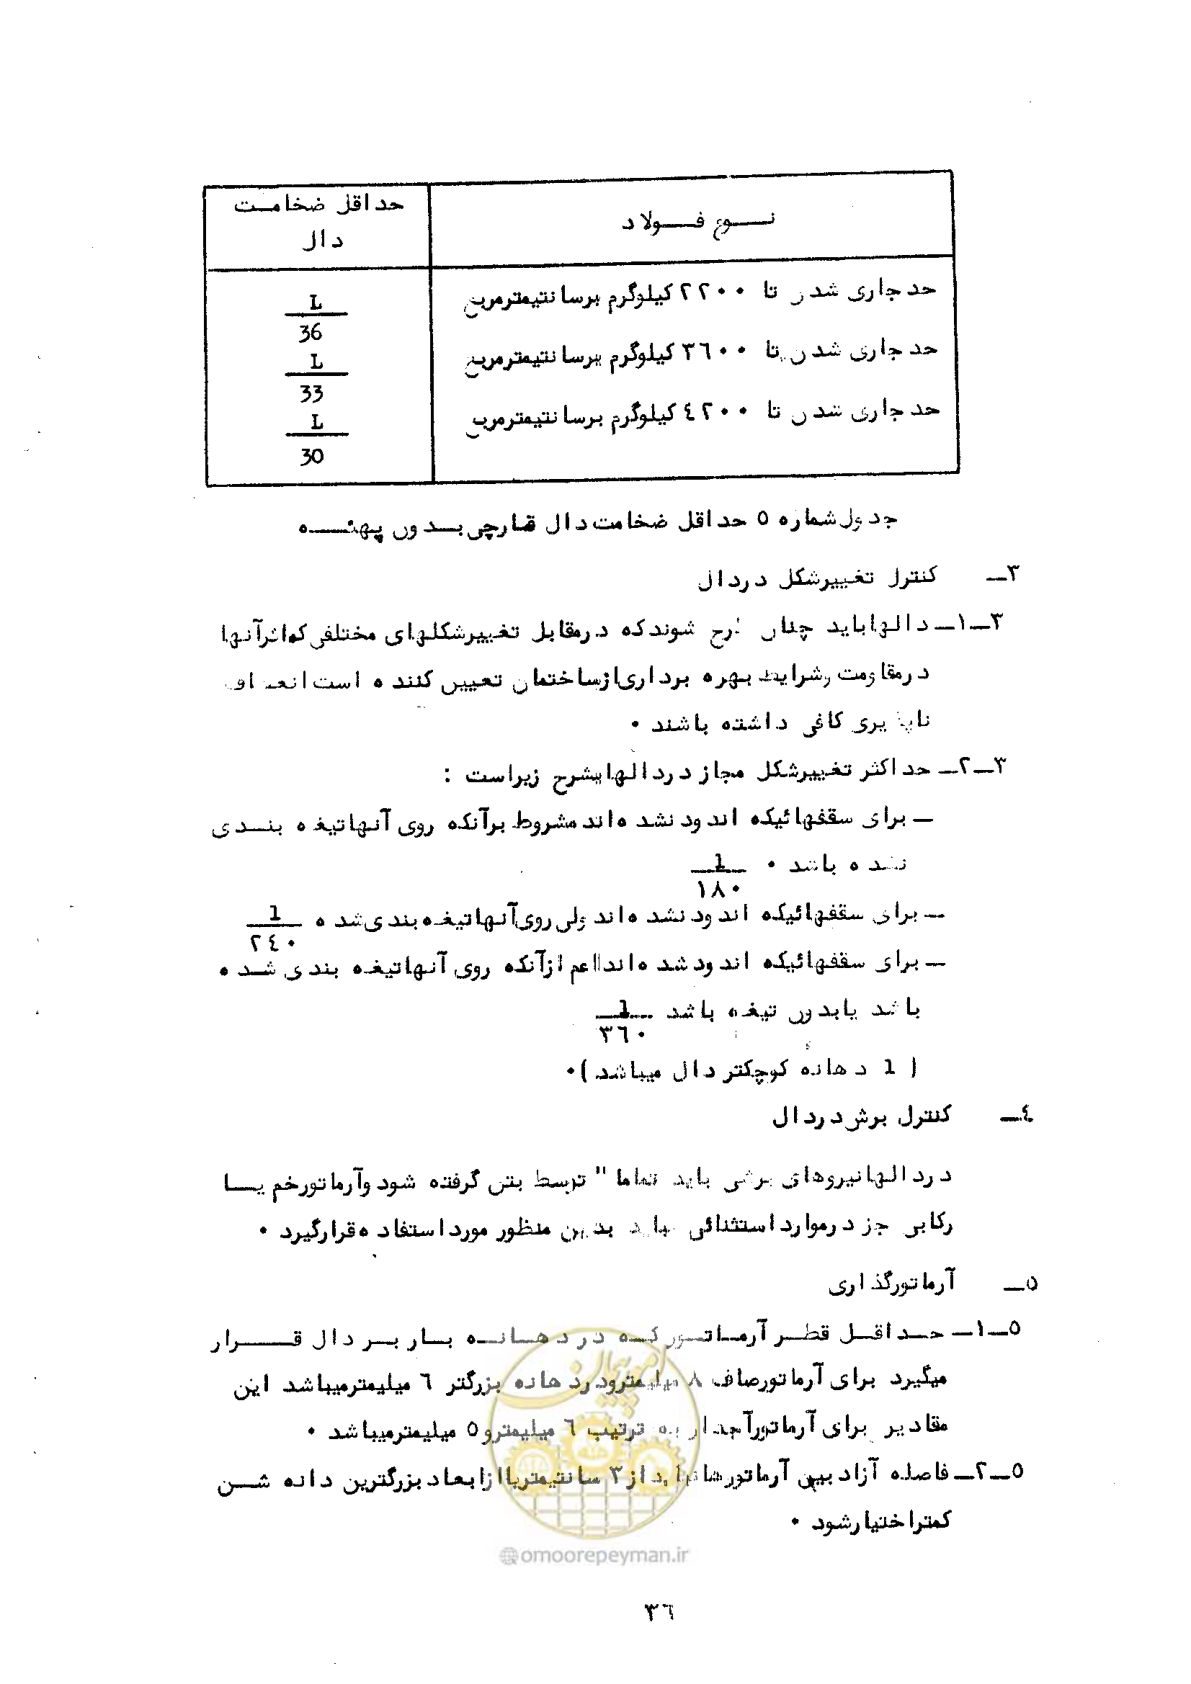 نوع فولاد
حداقل ضخامت
دال
حد جاری شدن تا ۲۲۰۰ کیلوگرم برسانتیمترمربع
L
36
حد جاری شدن تا ۳۶۰۰ کیلوگرم برسانتیمترمربع
L
33
حد جاری شدن تا ۴۲۰۰ کیلوگرم برسانتیمترمربع
L
30
جدول شماره ۵ حداقل ضخامت دال قارچی بدون پهنه
۳ــ کنترل تغییرشکل دردال
۳ــ۱ــ دالها باید چنان طرح شوند که درمقابل تغییرشکلهای مختلفی که اثرآنها
درمقاومت وشرایط بهره برداری ازساختمان تعیین کننده است انعطاف
ناپذیری کافی داشته باشند •
۳ــ۲ــ حداکثر تغییرشکل مجاز دردالها بشرح زیراست :
ــ برای سقفهائیکه اندود نشده اند مشروط برآنکه روی آنها تیغه بندی
نشده باشد • 1
۱۸۰
ــ برای سقفهائیکه اندود نشده اند ولی روی آنها تیغه بندی شده 1
۲۴۰
ــ برای سقفهائیکه اندود شده اند اعم ازآنکه روی آنها تیغه بندی شده
باشد یابدون تیغه باشد 1
۳۶۰
( 1 دهانه کوچکتر دال میباشد )•
۴ــ کنترل برش دردال
دردالها نیروهای برشی باید تماما " توسط بتن گرفته شود وآرماتورخم یا
رکابی جز درموارد استثنائی نباید بدین منظور مورد استفاده قرارگیرد •
۵ــ آرماتورگذاری
۵ــ۱ــ حداقل قطر آرماتور که در دهانه بار بر دال قرار
میگیرد برای آرماتورصاف ۸ میلیمترودردهانه بزرگتر ۶ میلیمترمیباشد این
مقادیر برای آرماتورآجدار به ترتیب ۶ میلیمترو ۵ میلیمترمیباشد •
۵ــ۲ــ فاصله آزاد بین آرماتورها نباید از ۳ سانتیمتریا ازابعاد بزرگترین دانه شن
کمتراختیارشود •
امور پیمان
@omoorepeyman.ir
۳۶